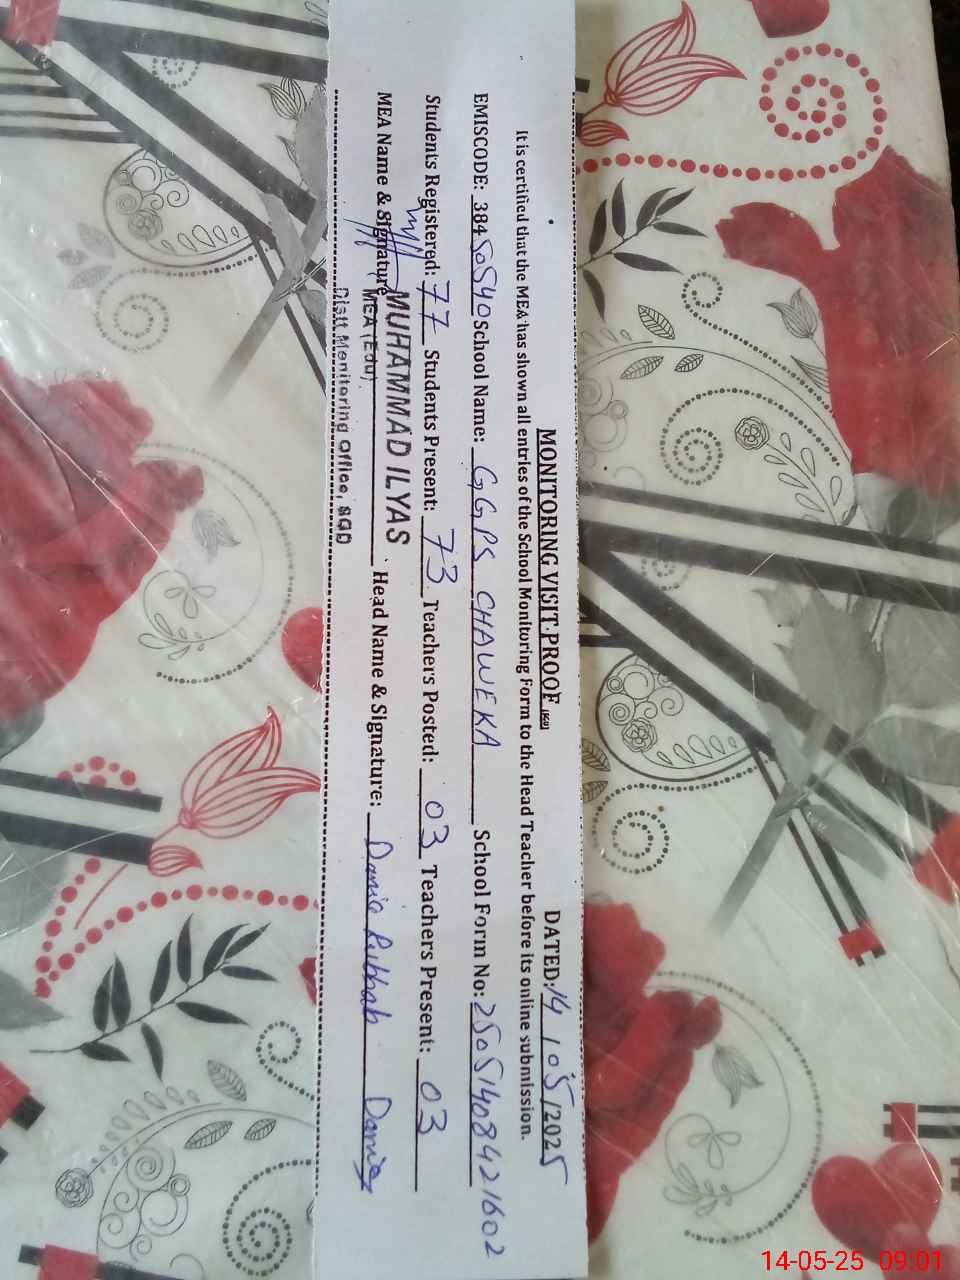 MONITORING VISIT PROOF DATED: 14/05/2025
It is certified that the MEA has shown all entries of the School Monitoring Form to the Head Teacher before its online submission.
EMISCODE: 38450540 School Name: GGPS CHAWEKA School Form No: 25051408421602
Students Registered: 77 Students Present: 73 Teachers Posted: 03 Teachers Present: 03
MEA Name & Signature MUHAMMAD ILYAS Head Name & Signature: Dania Rubbab Dania
MEA (Edu)
Distt Monitoring Office, SGD
14-05-25 09:01